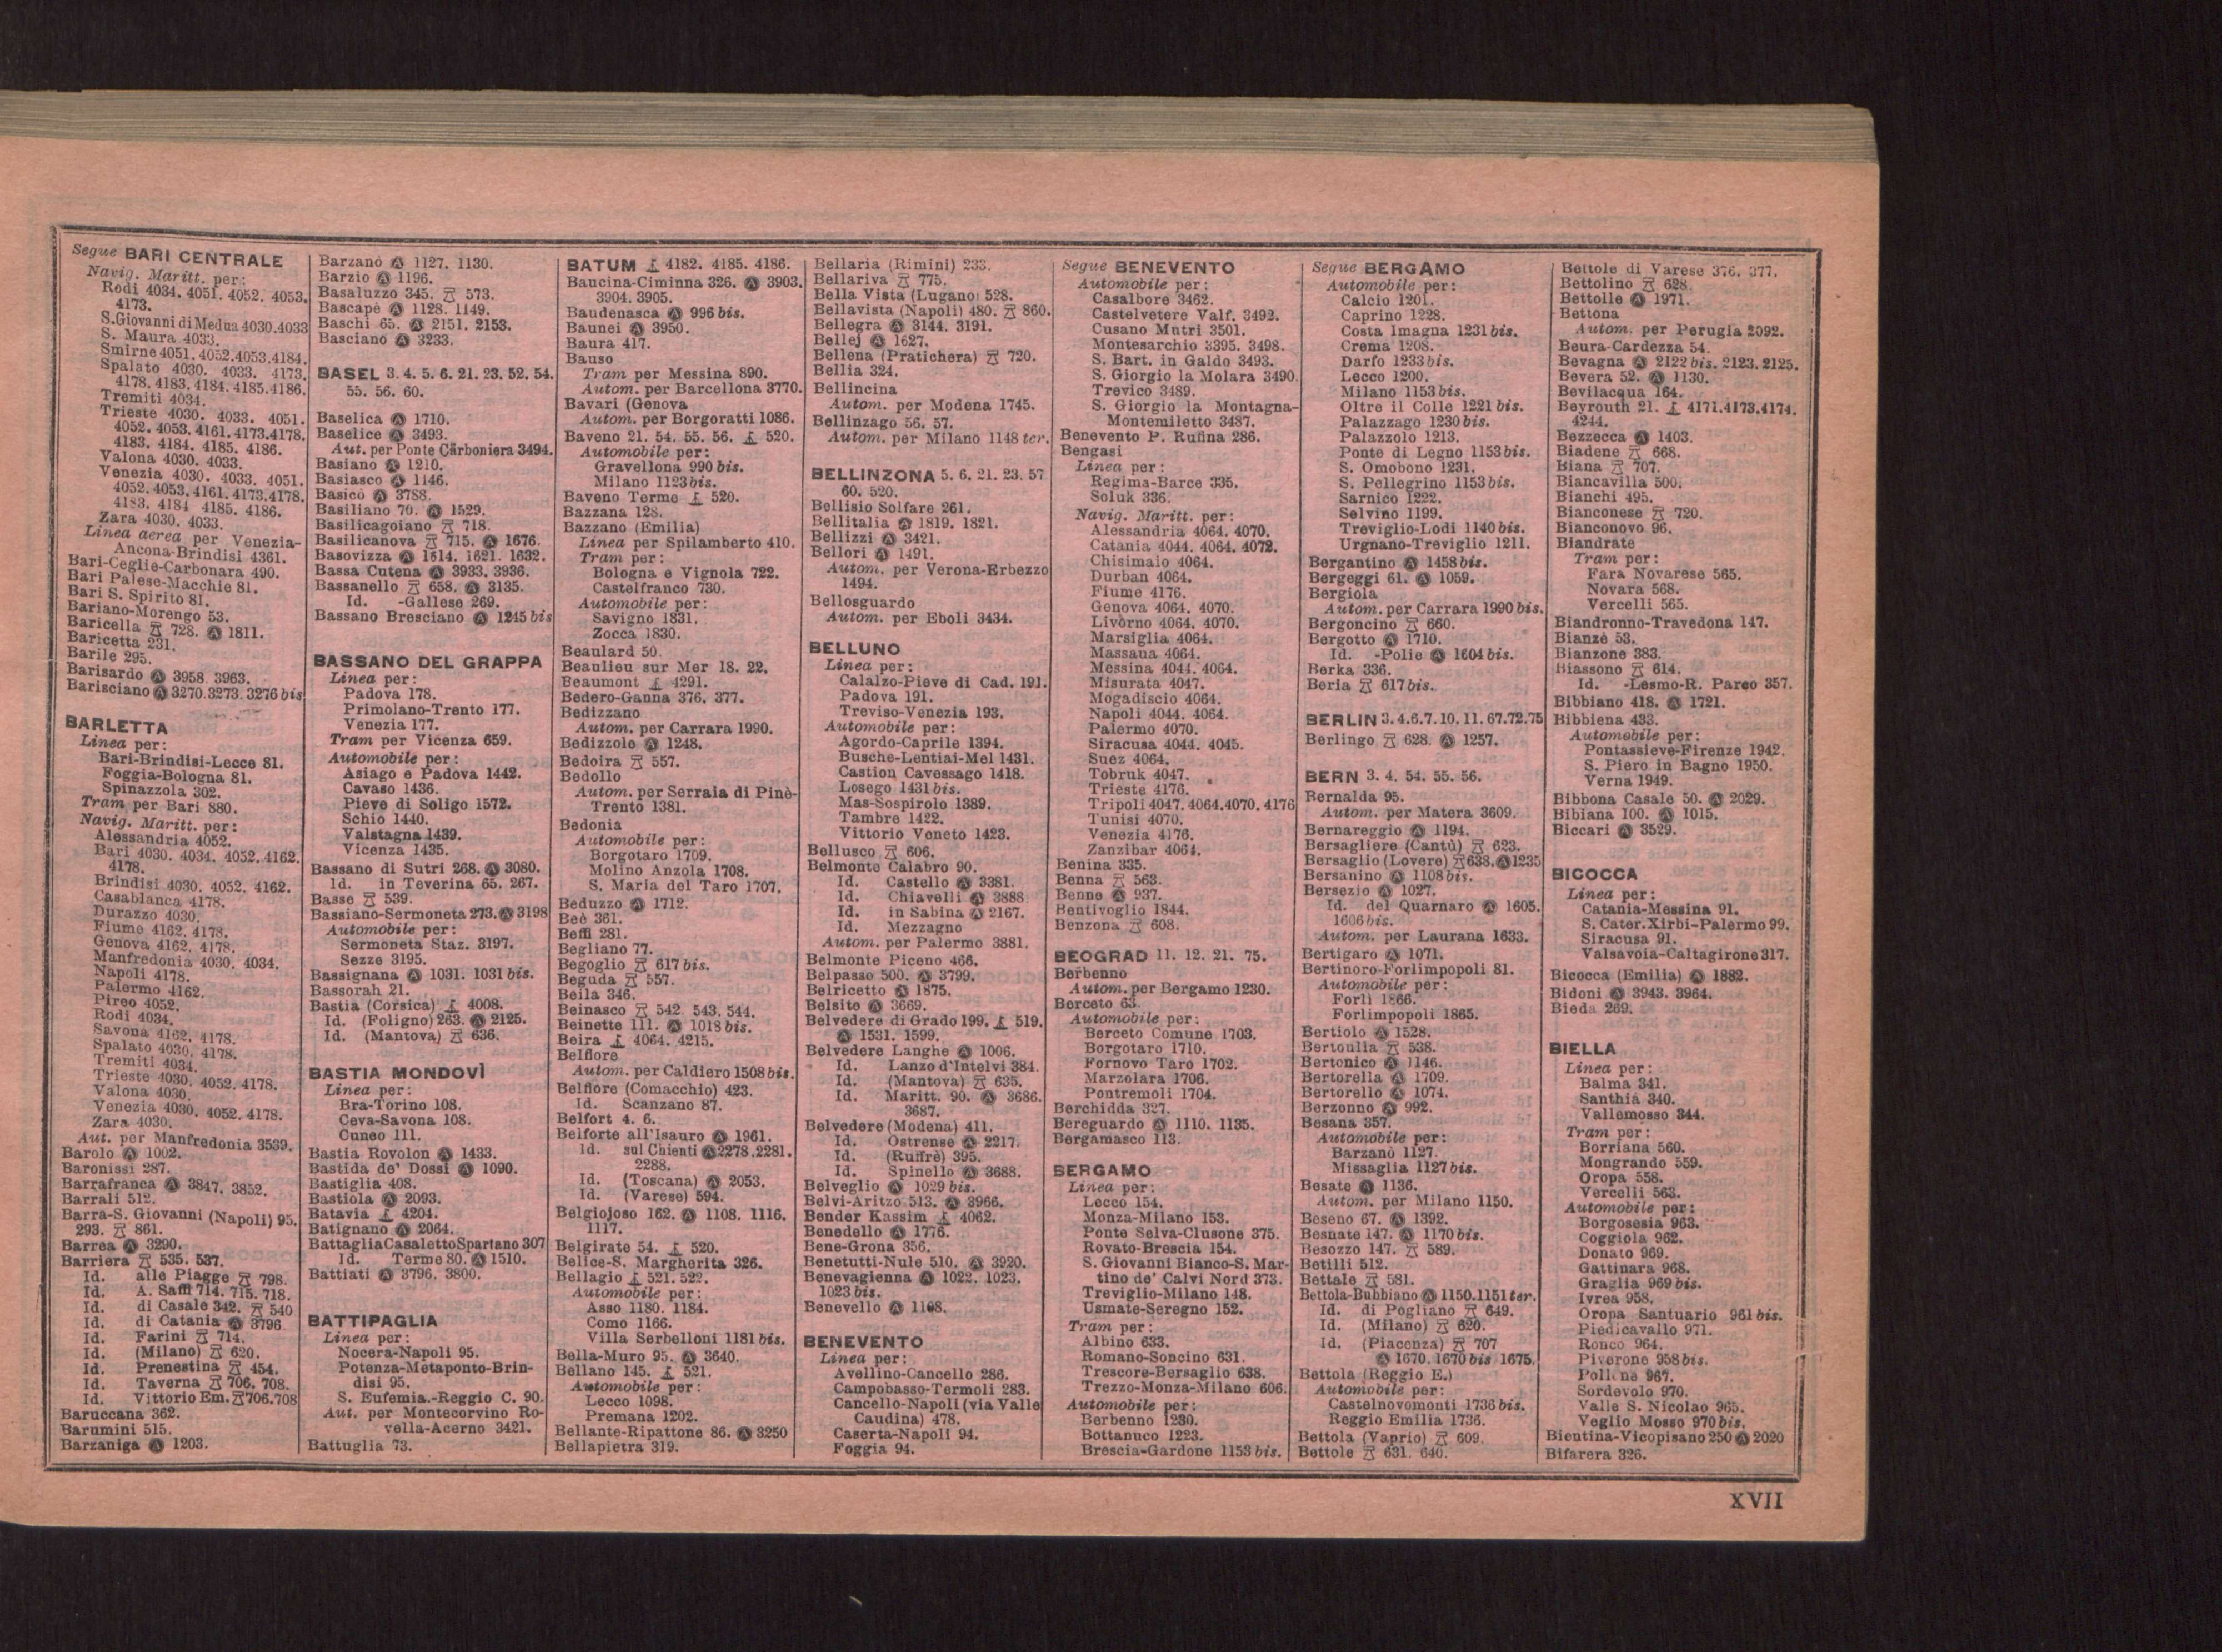 Segue BARI CENTRALE
Navig. Maritt. per:
Rodi 4034. 4051. 4052. 4053.
4173.
S.Giovanni di Medua 4030.4033
S. Maura 4033.
Smirne 4051. 4052.4053.4184.
Spalato 4030. 4033. 4173.
4178. 4183. 4184. 4185.4186.
Tremiti 4034.
Trieste 4030. 4033. 4051.
4052. 4053. 4161. 4173.4178.
4183. 4184. 4185. 4186.
Valona 4030. 4033.
Venezia 4030. 4033. 4051.
4052. 4053. 4161. 4173.4178.
4183. 4184 4185. 4186.
Zara 4030. 4033.
Linea aerea per Venezia-
Ancona-Brindisi 4361.
Bari-Ceglie-Carbonara 490.
Bari Palese-Macchie 81.
Bari S. Spirito 81.
Bariano-Morengo 53.
Baricella 728. Ⓐ 1811.
Baricetta 231.
Barile 295.
Barisardo Ⓐ 3958. 3963.
Barisciano Ⓐ 3270.3273. 3276 bis
BARLETTA
Linea per:
Bari-Brindisi-Lecce 81.
Foggia-Bologna 81.
Spinazzola 302.
Tram per Bari 880.
Navig. Maritt. per:
Alessandria 4052.
Bari 4030. 4034. 4052. 4162.
4178.
Brindisi 4030. 4052. 4162.
Casablanca 4178.
Durazzo 4030.
Fiume 4162. 4178.
Genova 4162. 4178.
Manfredonia 4030. 4034.
Napoli 4178.
Palermo 4162.
Pireo 4052.
Rodi 4034.
Savona 4162. 4178.
Spalato 4030. 4178.
Tremiti 4034.
Trieste 4030. 4052. 4178.
Valona 4030.
Venezia 4030. 4052. 4178.
Zara 4030.
Aut. per Manfredonia 3539.
Barolo Ⓐ 1002.
Baronissi 287.
Barrafranca Ⓐ 3847. 3852.
Barrali 512.
Barra-S. Giovanni (Napoli) 95.
293. 861.
Barrea Ⓐ 3290.
Barriera 535. 537.
Id. alle Piagge 798.
Id. A. Saffi 714. 715. 718.
Id. di Casale 342. 540
Id. di Catania Ⓐ 3796
Id. Farini 714.
Id. (Milano) 620.
Id. Prenestina 454.
Id. Taverna 706. 708.
Id. Vittorio Em. 706.708
Baruccana 362.
Barumini 515.
Barzaniga Ⓐ 1203.
Barzanò Ⓐ 1127. 1130.
Barzio Ⓐ 1196.
Basaluzzo 345. 573.
Bascapè Ⓐ 1128. 1149.
Baschi 65. Ⓐ 2151. 2153.
Basciano Ⓐ 3233.
BASEL 3. 4. 5. 6. 21. 23. 52. 54.
55. 56. 60.
Baselica Ⓐ 1710.
Baselice Ⓐ 3493.
Aut. per Ponte Carboniera 3494.
Basiano Ⓐ 1210.
Basiasco Ⓐ 1146.
Basicò Ⓐ 3788.
Basiliano 70. Ⓐ 1529.
Basilicagoiano 718.
Basilicanova 715. Ⓐ 1676.
Basovizza Ⓐ 1614. 1621. 1632.
Bassa Cutena Ⓐ 3933. 3936.
Bassanello 658. Ⓐ 3135.
Id. -Gallese 269.
Bassano Bresciano Ⓐ 1245 bis
BASSANO DEL GRAPPA
Linea per:
Padova 178.
Primolano-Trento 177.
Venezia 177.
Tram per Vicenza 659.
Automobile per:
Asiago e Padova 1442.
Cavaso 1436.
Pieve di Soligo 1572.
Schio 1440.
Valstagna 1439.
Vicenza 1435.
Bassano di Sutri 268. Ⓐ 3080.
Id. in Teverina 65. 267.
Basse 539.
Bassiano-Sermoneta 273. Ⓐ 3198
Automobile per:
Sermoneta Staz. 3197.
Sezze 3195.
Bassignana Ⓐ 1031. 1031 bis.
Bassorah 21.
Bastia (Corsica) 4008.
Id. (Foligno) 263. Ⓐ 2125.
Id. (Mantova) 636.
BASTIA MONDOVÌ
Linea per:
Bra-Torino 108.
Ceva-Savona 108.
Cuneo 111.
Bastia Rovolon Ⓐ 1433.
Bastida de' Dossi Ⓐ 1090.
Bastiglia 408.
Bastiola Ⓐ 2093.
Batavia 4204.
Batignano Ⓐ 2064.
BattagliaCasalettoSpartano 307
Id. Terme 80. Ⓐ 1510.
Battiati Ⓐ 3796. 3800.
BATTIPAGLIA
Linea per:
Nocera-Napoli 95.
Potenza-Metaponto-Brin-
disi 95.
S. Eufemia.-Reggio C. 90.
Aut. per Montecorvino Ro-
vella-Acerno 3421.
Battuglia 73.
BATUM 4182. 4185. 4186.
Baucina-Ciminna 326. Ⓐ 3903.
3904. 3905.
Baudenasca Ⓐ 996 bis.
Baunei Ⓐ 3950.
Baura 417.
Bauso
Tram per Messina 890.
Autom. per Barcellona 3770.
Bavari (Genova
Autom. per Borgoratti 1086.
Baveno 21. 54. 55. 56. 520.
Automobile per:
Gravellona 990 bis.
Milano 1123bis.
Baveno Terme 520.
Bazzana 128.
Bazzano (Emilia)
Linea per Spilamberto 410.
Tram per:
Bologna e Vignola 722.
Castelfranco 730.
Automobile per:
Savigno 1831.
Zocca 1830.
Beaulard 50.
Beaulieu sur Mer 18. 22.
Beaumont 4291.
Bedero-Ganna 376. 377.
Bedizzano
Autom. per Carrara 1990.
Bedizzole Ⓐ 1248.
Bedoira 557.
Bedollo
Autom. per Serraia di Pinè-
Trento 1381.
Bedonia
Automobile per:
Borgotaro 1709.
Molino Anzola 1708.
S. Maria del Taro 1707.
Beduzzo Ⓐ 1712.
Beè 361.
Beffi 281.
Begliano 77.
Begoglio 617 bis.
Beguda 557.
Beila 346.
Beinasco 542. 543. 544.
Beinette 111. Ⓐ 1018 bis.
Beira 4064. 4215.
Belfiore
Autom. per Caldiero 1508 bis.
Belfiore (Comacchio) 423.
Id. Scanzano 87.
Belfort 4. 6.
Belforte all'Isauro Ⓐ 1961.
Id. sul Chienti Ⓐ 2278.2281.
2288.
Id. (Toscana) Ⓐ 2053.
Id. (Varese) 594.
Belgiojoso 162. Ⓐ 1108. 1116.
1117.
Belgirate 54. 520.
Belice-S. Margherita 326.
Bellagio 521. 522.
Automobile per:
Asso 1180. 1184.
Como 1166.
Villa Serbelloni 1181 bis.
Bella-Muro 95. Ⓐ 3640.
Bellano 145. 521.
Automobile per:
Lecco 1098.
Premana 1202.
Bellante-Ripattone 86. Ⓐ 3250
Bellapietra 319.
Bellaria (Rimini) 233.
Bellariva 775.
Bella Vista (Lugano) 528.
Bellavista (Napoli) 480. 860.
Bellegra Ⓐ 3144. 3191.
Bellej Ⓐ 1627.
Bellena (Pratichera) 720.
Bellia 324.
Bellincina
Autom. per Modena 1745.
Bellinzago 56. 57.
Autom. per Milano 1148 ter.
BELLINZONA 5. 6. 21. 23. 57
60. 520.
Bellisio Solfare 261.
Bellitalia Ⓐ 1819. 1821.
Bellizzi Ⓐ 3421.
Bellori Ⓐ 1491.
Autom. per Verona-Erbezzo
1494.
Bellosguardo
Autom. per Eboli 3434.
BELLUNO
Linea per:
Calalzo-Pieve di Cad. 191.
Padova 191.
Treviso-Venezia 193.
Automobile per:
Agordo-Caprile 1394.
Busche-Lentiai-Mel 1431.
Castion Cavessago 1418.
Losego 1431 bis.
Mas-Sospirolo 1389.
Tambre 1422.
Vittorio Veneto 1423.
Bellusco 606.
Belmonte Calabro 90.
Id. Castello Ⓐ 3381.
Id. Chiavelli Ⓐ 3888
Id. in Sabina Ⓐ 2167.
Id. Mezzagno
Autom. per Palermo 3881.
Belmonte Piceno 466.
Belpasso 500. Ⓐ 3799.
Belricetto Ⓐ 1875.
Belsito Ⓐ 3669.
Belvedere di Grado 199. 519.
Ⓐ 1531. 1599.
Belvedere Langhe Ⓐ 1006.
Id. Lanzo d'Intelvi 384.
Id. (Mantova) 635.
Id. Maritt. 90. Ⓐ 3686.
3687.
Belvedere (Modena) 411.
Id. Ostrense Ⓐ 2217.
Id. (Ruffrè) 395.
Id. Spinello Ⓐ 3688.
Belveglio Ⓐ 1029 bis.
Belvi-Aritzo 513. Ⓐ 3966.
Bender Kassim 4062.
Benedello Ⓐ 1776.
Bene-Grona 356.
Benetutti-Nule 510. Ⓐ 3920.
Benevagienna Ⓐ 1022. 1023.
1023 bis.
Benevello Ⓐ 1108.
BENEVENTO
Linea per:
Avellino-Cancello 286.
Campobasso-Termoli 283.
Cancello-Napoli (via Valle
Caudina) 478.
Caserta-Napoli 94.
Foggia 94.
Segue BENEVENTO
Automobile per:
Casalbore 3462.
Castelvetere Valf. 3492.
Cusano Mutri 3501.
Montesarchio 3395. 3498.
S. Bart. in Galdo 3493.
S. Giorgio la Molara 3490
Trevico 3489.
S. Giorgio la Montagna-
Montemiletto 3487.
Benevento P. Rufina 286.
Bengasi
Linea per:
Regima-Barce 335.
Soluk 336.
Navig. Maritt. per:
Alessandria 4064. 4070.
Catania 4044. 4064. 4072.
Chisimaio 4064.
Durban 4064.
Fiume 4176.
Genova 4064. 4070.
Livorno 4064. 4070.
Marsiglia 4064.
Massaua 4064.
Messina 4044. 4064.
Misurata 4047.
Mogadiscio 4064.
Napoli 4044. 4064.
Palermo 4070.
Siracusa 4044. 4045.
Suez 4064.
Tobruk 4047.
Trieste 4176.
Tripoli 4047. 4064.4070. 4176
Tunisi 4070.
Venezia 4176.
Zanzibar 4064.
Benina 335.
Benna 563.
Benne Ⓐ 937.
Bentivoglio 1844.
Benzona 608.
BEOGRAD 11. 12. 21. 75.
Berbenno
Autom. per Bergamo 1230.
Berceto 63.
Automobile per:
Berceto Comune 1703.
Borgotaro 1710.
Fornovo Taro 1702.
Marzolara 1706.
Pontremoli 1704.
Berchidda 327.
Bereguardo Ⓐ 1110. 1135.
Bergamasco 113.
BERGAMO
Linea per:
Lecco 154.
Monza-Milano 153.
Ponte Selva-Clusone 375.
Rovato-Brescia 154.
S. Giovanni Bianco-S. Mar-
tino de' Calvi Nord 373.
Treviglio-Milano 148.
Usmate-Seregno 152.
Tram per:
Albino 633.
Romano-Soncino 631.
Trescore-Bersaglio 638.
Trezzo-Monza-Milano 606.
Automobile per:
Berbenno 1230.
Bottanuco 1223.
Brescia-Gardone 1153 bis.
Segue BERGAMO
Automobile per:
Calcio 1201.
Caprino 1228.
Costa Imagna 1231 bis.
Crema 1208.
Darfo 1233 bis.
Lecco 1200.
Milano 1153 bis.
Oltre il Colle 1221 bis.
Palazzago 1230 bis.
Palazzolo 1213.
Ponte di Legno 1153 bis.
S. Omobono 1231.
S. Pellegrino 1153 bis.
Sarnico 1222.
Selvino 1199.
Treviglio-Lodi 1140 bis.
Urgnano-Treviglio 1211.
Bergantino Ⓐ 1458 bis.
Bergeggi 61. Ⓐ 1059.
Bergiola
Autom. per Carrara 1990 bis.
Bergoncino 660.
Bergotto Ⓐ 1710.
Id. -Polie Ⓐ 1604 bis.
Berka 336.
Berla 617 bis.
BERLIN 3. 4.6.7. 10. 11. 67.72.75
Berlingo 628. Ⓐ 1257.
BERN 3. 4. 54. 55. 56.
Bernalda 95.
Autom. per Matera 3609.
Bernareggio Ⓐ 1194.
Bersagliere (Cantù) 623.
Bersaglio (Lovere) 638. Ⓐ 1235
Bersanino Ⓐ 1108 bis.
Bersezio Ⓐ 1027.
Id. del Quarnaro Ⓐ 1605.
1606 bis.
Autom. per Laurana 1633.
Bertigaro Ⓐ 1071.
Bertinoro-Forlimpopoli 81.
Automobile per:
Forlì 1866.
Forlimpopoli 1865.
Bertiolo Ⓐ 1528.
Bertoulla 538.
Bertonico Ⓐ 1146.
Bertorella Ⓐ 1709.
Bertorello Ⓐ 1074.
Berzonno Ⓐ 992.
Besana 357.
Automobile per:
Barzanò 1127.
Missaglia 1127 bis.
Besate Ⓐ 1136.
Autom. per Milano 1150.
Beseno 67. Ⓐ 1392.
Besnate 147. Ⓐ 1170 bis.
Besozzo 147. 589.
Betilli 512.
Bettale 581.
Bettola-Bubbiano Ⓐ 1150.1151 ter.
Id. di Pogliano 649.
Id. (Milano) 620.
Id. (Piacenza) 707
Ⓐ 1670. 1670 bis 1675.
Bettola (Reggio E.)
Automobile per:
Castelnovomonti 1736 bis.
Reggio Emilia 1736.
Bettola (Vaprio) 609.
Bettole 631. 640.
Bettole di Varese 376. 377.
Bettolino 628.
Bettolle Ⓐ 1971.
Bettona
Autom. per Perugia 2092.
Beura-Cardezza 54.
Bevagna Ⓐ 2122 bis. 2123. 2125.
Bevera 52. Ⓐ 1130.
Bevilacqua 164.
Beyrouth 21. 4171.4173.4174.
4244.
Bezzecca Ⓐ 1403.
Biadene 668.
Biana 707.
Biancavilla 500.
Bianchi 495.
Bianconese 720.
Bianconovo 96.
Biandrate
Tram per:
Fara Novarese 565.
Novara 568.
Vercelli 565.
Biandronno-Travedona 147.
Bianzè 53.
Bianzone 383.
Biassono 614.
Id. -Lesmo-R. Parco 357.
Bibbiano 418. Ⓐ 1721.
Bibbiena 433.
Automobile per:
Pontassieve-Firenze 1942.
S. Piero in Bagno 1950.
Verna 1949.
Bibbona Casale 50. Ⓐ 2029.
Bibiana 100. Ⓐ 1015.
Biccari Ⓐ 3529.
BICOCCA
Linea per:
Catania-Messina 91.
S. Cater.Xirbi-Palermo 99.
Siracusa 91.
Valsavoia-Caltagirone 317.
Bicocca (Emilia) Ⓐ 1882.
Bidoni Ⓐ 3943. 3964.
Bieda 269.
BIELLA
Linea per:
Balma 341.
Santhià 340.
Vallemosso 344.
Tram per:
Borriana 560.
Mongrando 559.
Oropa 558.
Vercelli 563.
Automobile per:
Borgosesia 963.
Coggiola 962.
Donato 969.
Gattinara 968.
Graglia 969 bis.
Ivrea 958.
Oropa Santuario 961 bis.
Piedicavallo 971.
Ronco 964.
Piverone 958 bis.
Pollone 967.
Sordevolo 970.
Valle S. Nicolao 965.
Veglio Mosso 970 bis.
Bientina-Vicopisano 250 Ⓐ 2020
Bifarera 326.
XVII